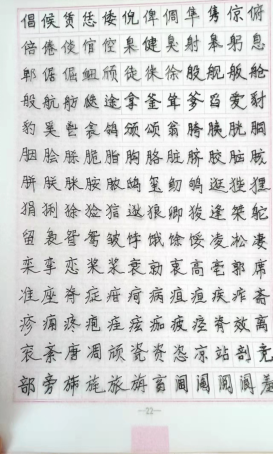 倡候赁恁倭倪俾倜隼隽倞俯
倍倦倓倌倥臬健臭射皋躬息
郫倨倔衄颀徒徕徐殷舰舨舱
般航舫瓞途拿釜耸爹舀爱豺
豹奚鬯衾鸽颂颂翁胯胰胱胴
胭脍脎脆脂胸胳脏脐胶脑胲
胼朕脒胺脓鸱玺鱽鸲逛狴狸
狷猁狳猃狺逖狼卿狻逢桀鸵
留袅鸳皱饽饿馀馁凌凇凄
栾挛恋桨浆衰勍衷高亳郭席
准座脊症疳疴病疽疸疾痄斋
疹痈疼疱疰痃痂疲痉脊效离
衮紊唐凋颃瓷资恣凉站剖竞
部旁旆旄旅旃畜阃阄阅阆羞
—22—